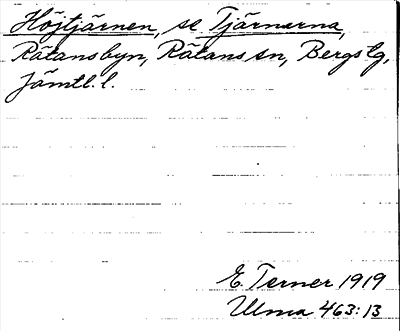 Höjtjärnen, se Tjärnarna,
Rätansbyn, Rätans sn, Bergs tg,
Jämtl. l.
E. Terner 1919
Ulma 463:13